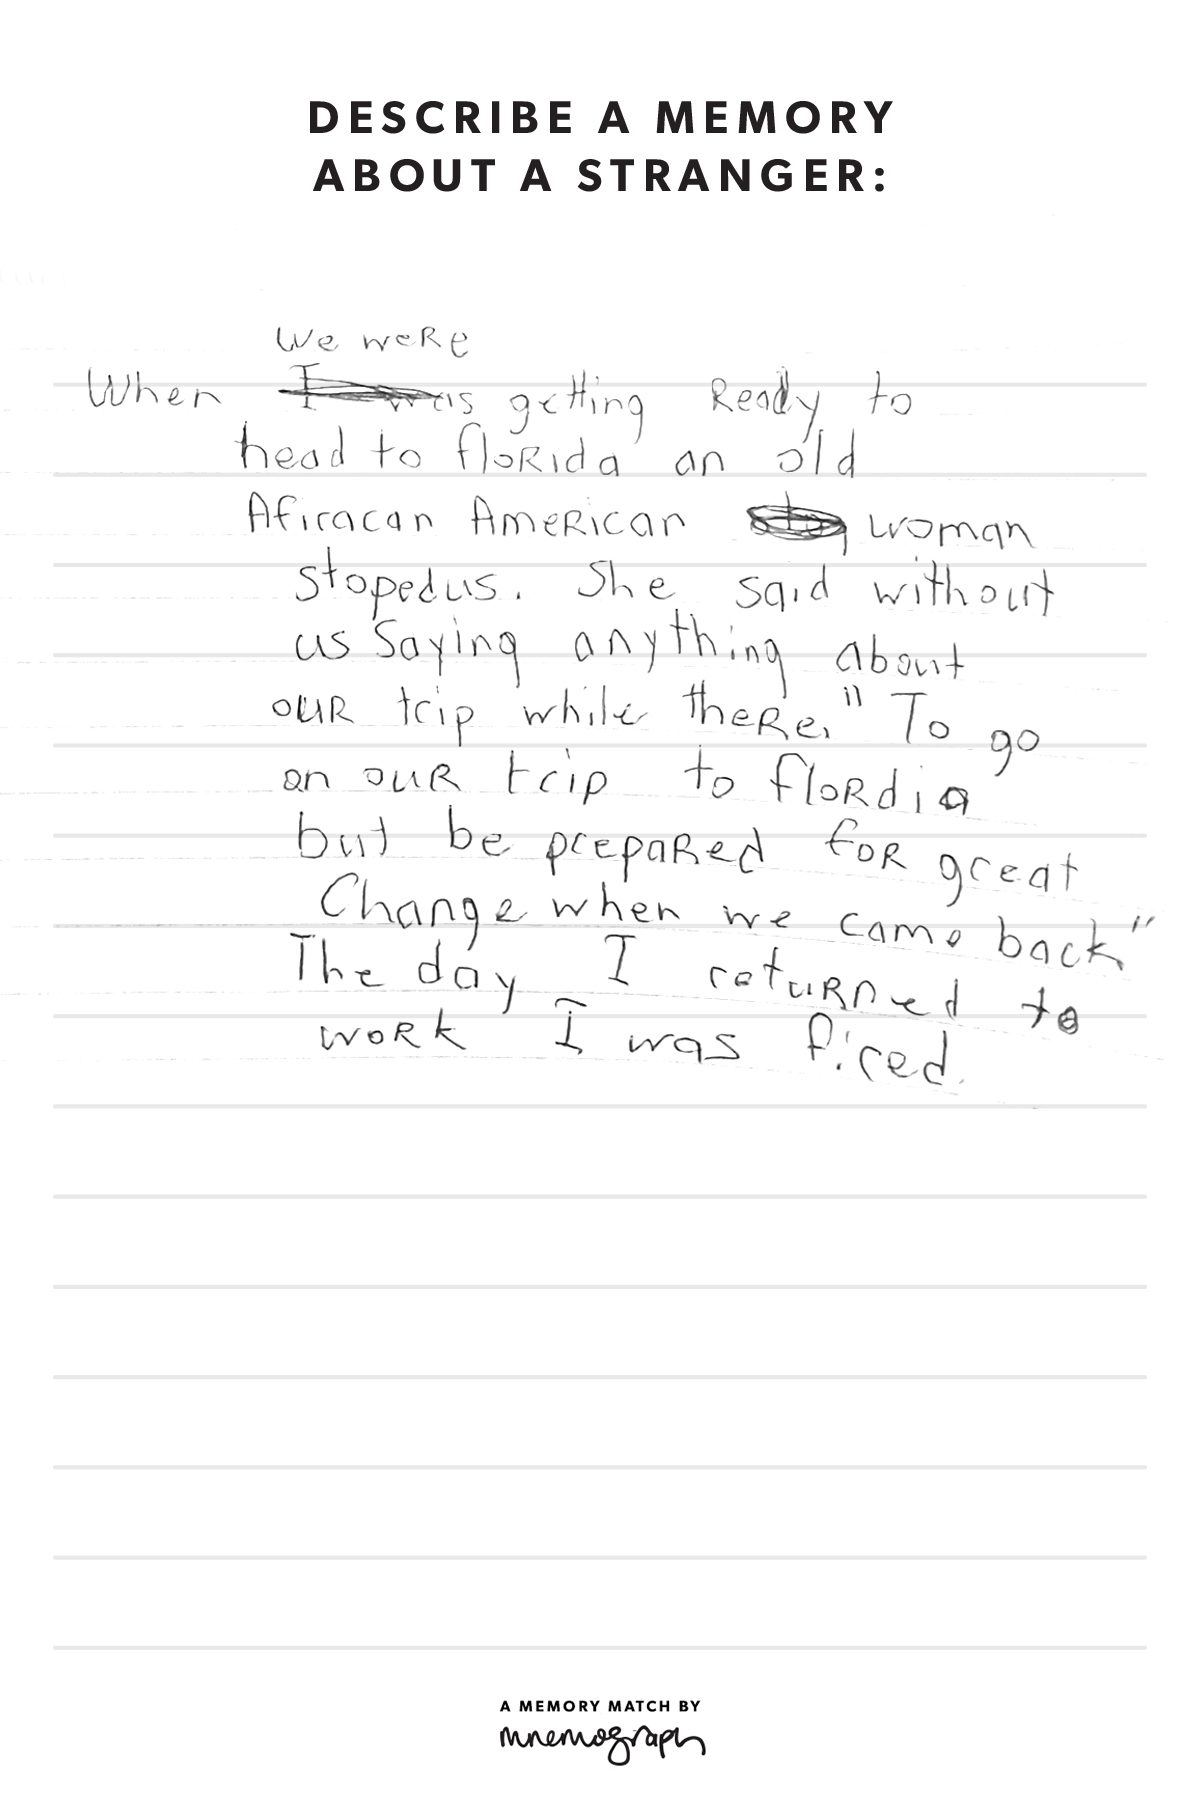 DESCRIBE A MEMORY
ABOUT A STRANGER:
We were
When I was getting Ready to
head to floRida an old
Afiracan AmeRican woman
stoped us. She said without
us saying anything about
ouR trip while theRe. "To go
on ouR trip to floRdia
but be prepaRed foR great
Change when we came back"
The day I retuRned to
woRk I was fired.
A MEMORY MATCH BY
mnemograph